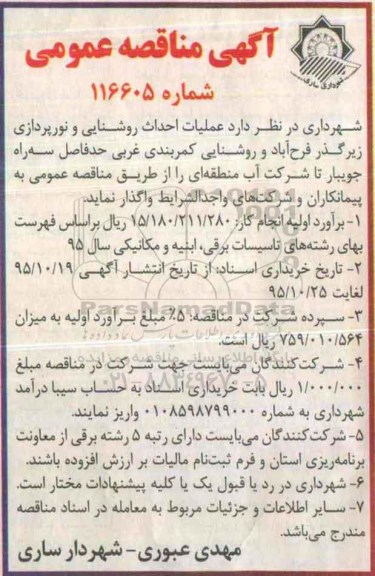 شهرداری ساری
آگهی مناقصه عمومی
شماره ۱۱۶۶۰۵
شهرداری در نظر دارد عملیات احداث روشنایی و نورپردازی
زیرگذر فرح‌آباد و روشنایی کمربندی غربی حدفاصل سه‌راه
جویبار تا شرکت آب منطقه‌ای را از طریق مناقصه عمومی به
پیمانکاران و شرکت‌های واجدالشرایط واگذار نماید.
۱- برآورد اولیه انجام کار: ۱۵/۱۸۰/۲۱۱/۲۸۰ ریال براساس فهرست
بهای رشته‌های تاسیسات برقی، ابنیه و مکانیکی سال ۹۵
۲- تاریخ خریداری اسناد: از تاریخ انتشار آگهی ۹۵/۱۰/۱۹
لغایت ۹۵/۱۰/۲۵
۳- سپرده شرکت در مناقصه: ۵٪ مبلغ برآورد اولیه به میزان
۷۵۹/۰۱۰/۵۶۴ ریال است.
۴- شرکت‌کنندگان می‌بایست جهت شرکت در مناقصه مبلغ
۱/۰۰۰/۰۰۰ ریال بابت خریداری اسناد به حساب سیبا درآمد
شهرداری به شماره ۰۱۰۸۵۹۸۷۹۹۰۰۰ واریز نمایند.
۵- شرکت‌کنندگان می‌بایست دارای رتبه ۵ رشته برقی از معاونت
برنامه‌ریزی استان و فرم ثبت‌نام مالیات بر ارزش افزوده باشند.
۶- شهرداری در رد یا قبول یک یا کلیه پیشنهادات مختار است.
۷- سایر اطلاعات و جزئیات مربوط به معامله در اسناد مناقصه
مندرج می‌باشد.
مهدی عبوری- شهردار ساری
ParsNamadData